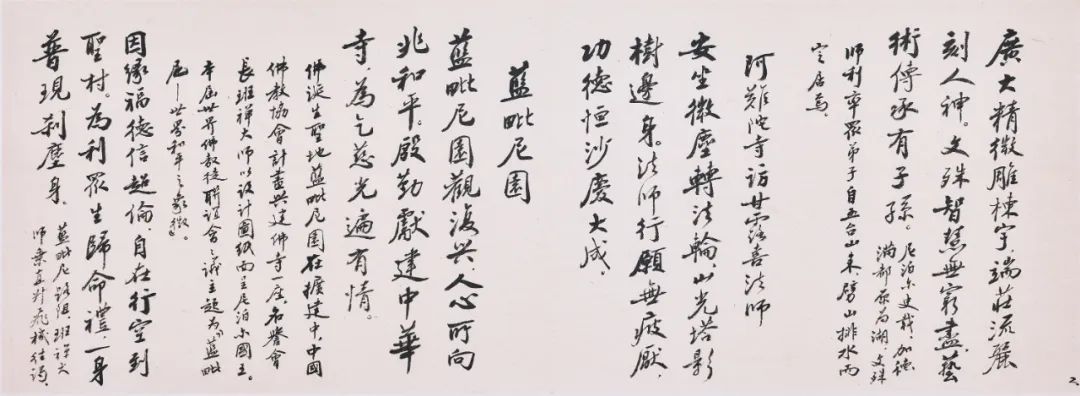 廣大精微雕棟宇，端莊流麗
刻人神。文殊智慧無窮盡，藝
術傳承有子孫。尼泊尔史载，加德
滿都原为湖，文殊
師利率眾弟子自五台山来，劈山排水而
定居焉，
阿難陀寺訪甘露喜法師
安坐微塵轉法輪，山光塔影
樹邊身。法師行願無疲厭，
功德恒沙慶大成，
藍毗尼園
藍毗尼園觀復兴，人心所向
兆和平。殷勤獻建中華
寺，為乞慈光遍有情。
佛诞生聖地藍毗尼園在擴建中，中國
佛教協會計畫興建佛寺一座，名譽會
長班禪大师以设計圖纸面呈尼泊尔國王。
本屆世界佛教徒聯誼會之議主题为“藍毗
尼——世界和平之象徵”
因緣福德信超倫，自在行空到
聖村。為利眾生歸命禮，一身
普現刹塵身，藍毗尼路阻，班禅大
师乘直升飛機往谒，
2、